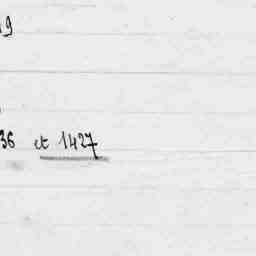 19
36 et 1427